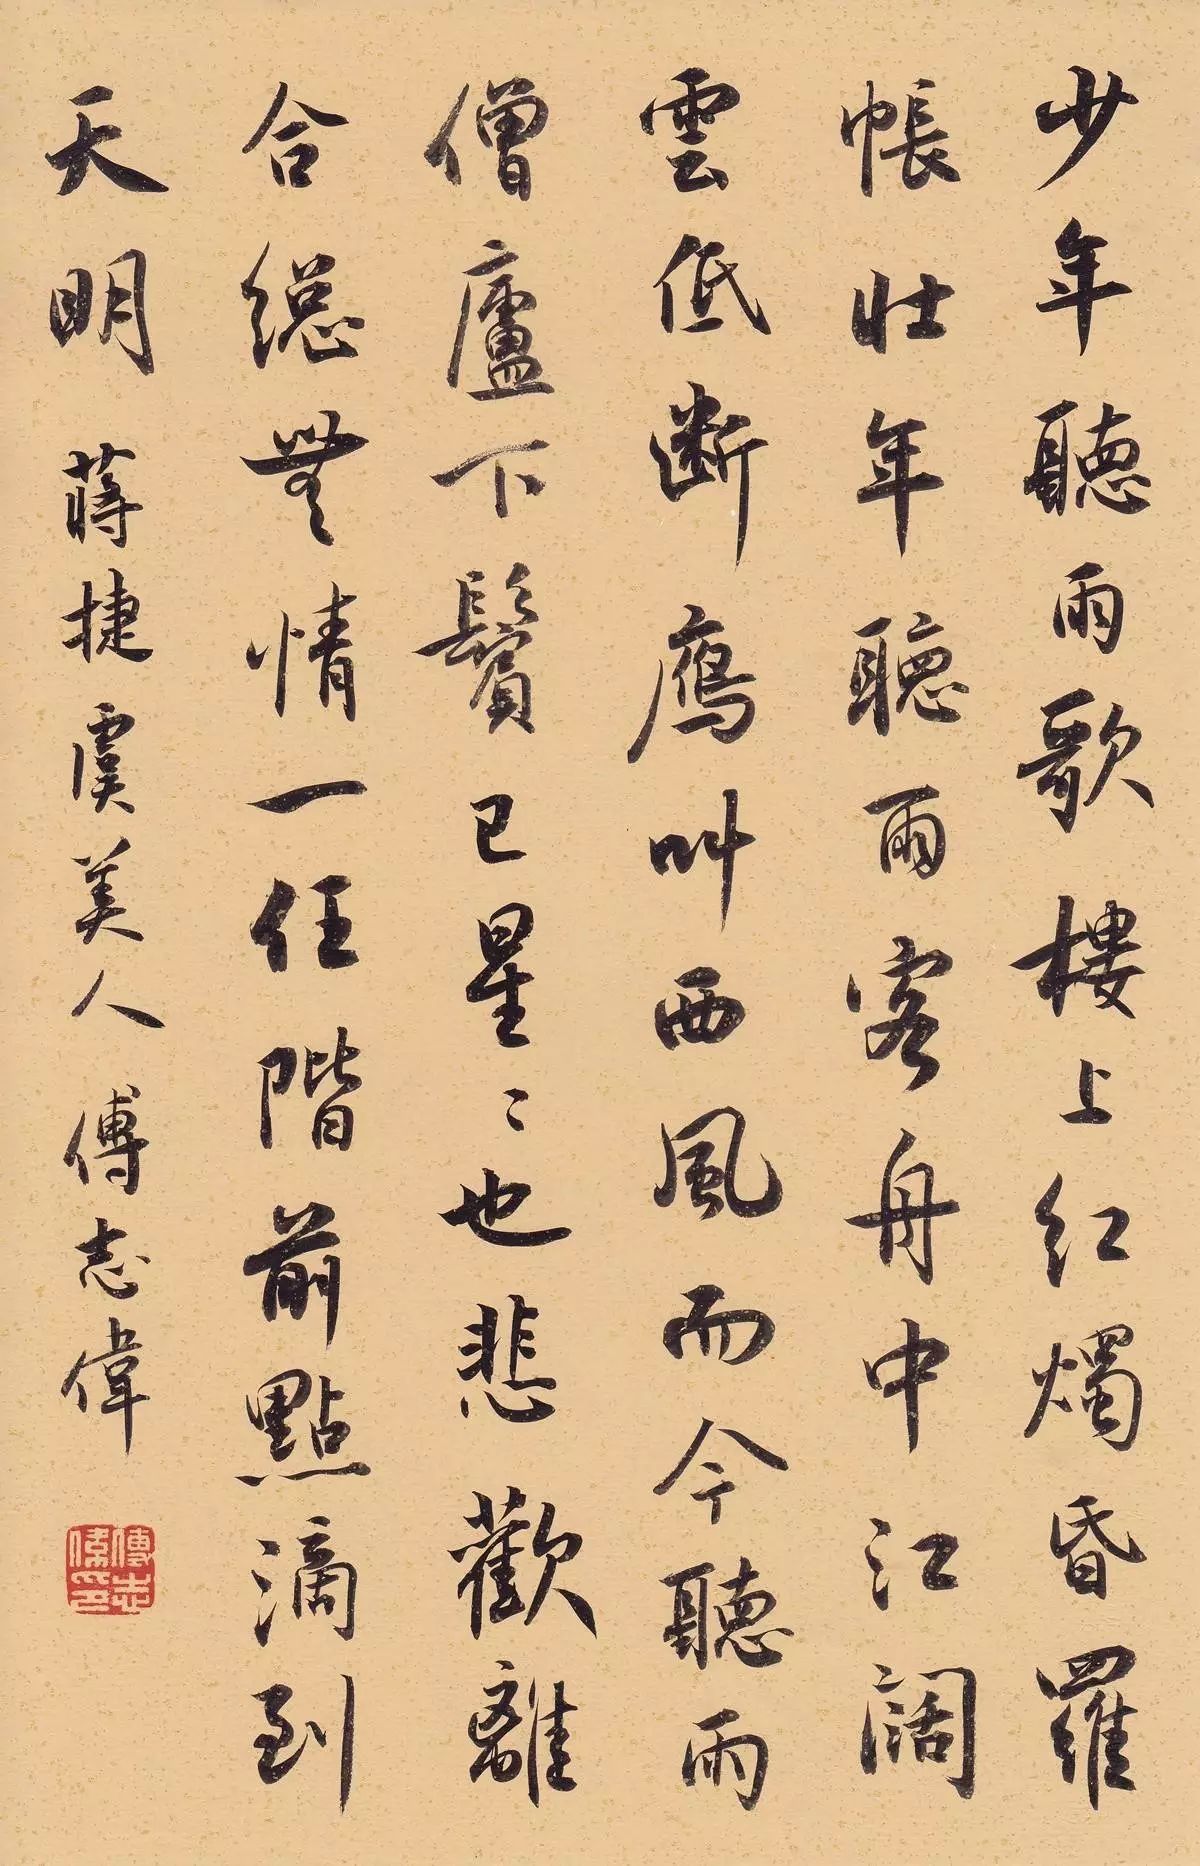 少年聽雨歌樓上紅燭昏羅
帳壯年聽雨客舟中江闊
雲低斷鴈叫西風而今聽雨
僧廬下鬢已星〻也悲歡離
合總無情一任階前點滴到
天明 蔣捷虞美人 傅志偉
傅志偉印